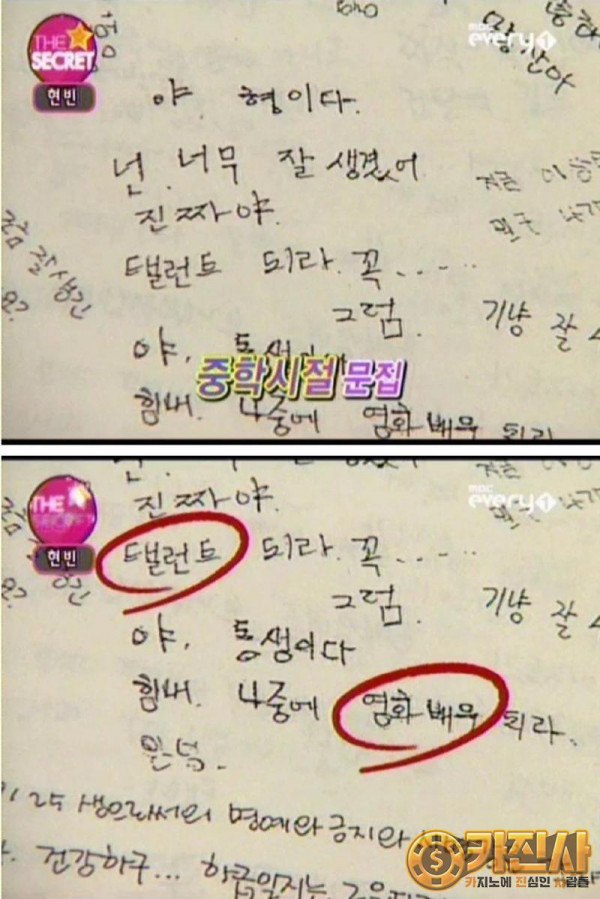 THE SECRET
현빈
mbc every1
야. 형이다.
넌 너무 잘 생겼어
진짜야.
탤런트 되라. 꼭.....
그럼. 기냥 잘
잘생긴
야,
중학시절 문집
힘내. 나중에 영화배우 되라
THE SECRET
현빈
mbc every1
진짜야.
탤런트 되라. 꼭.....
그럼. 기냥 잘
야, 동생이다
힘내. 나중에 영화배우 되라.
생으로써의 명예와 긍지와
건강하구...
카진사
카지노에 진심인 사람들